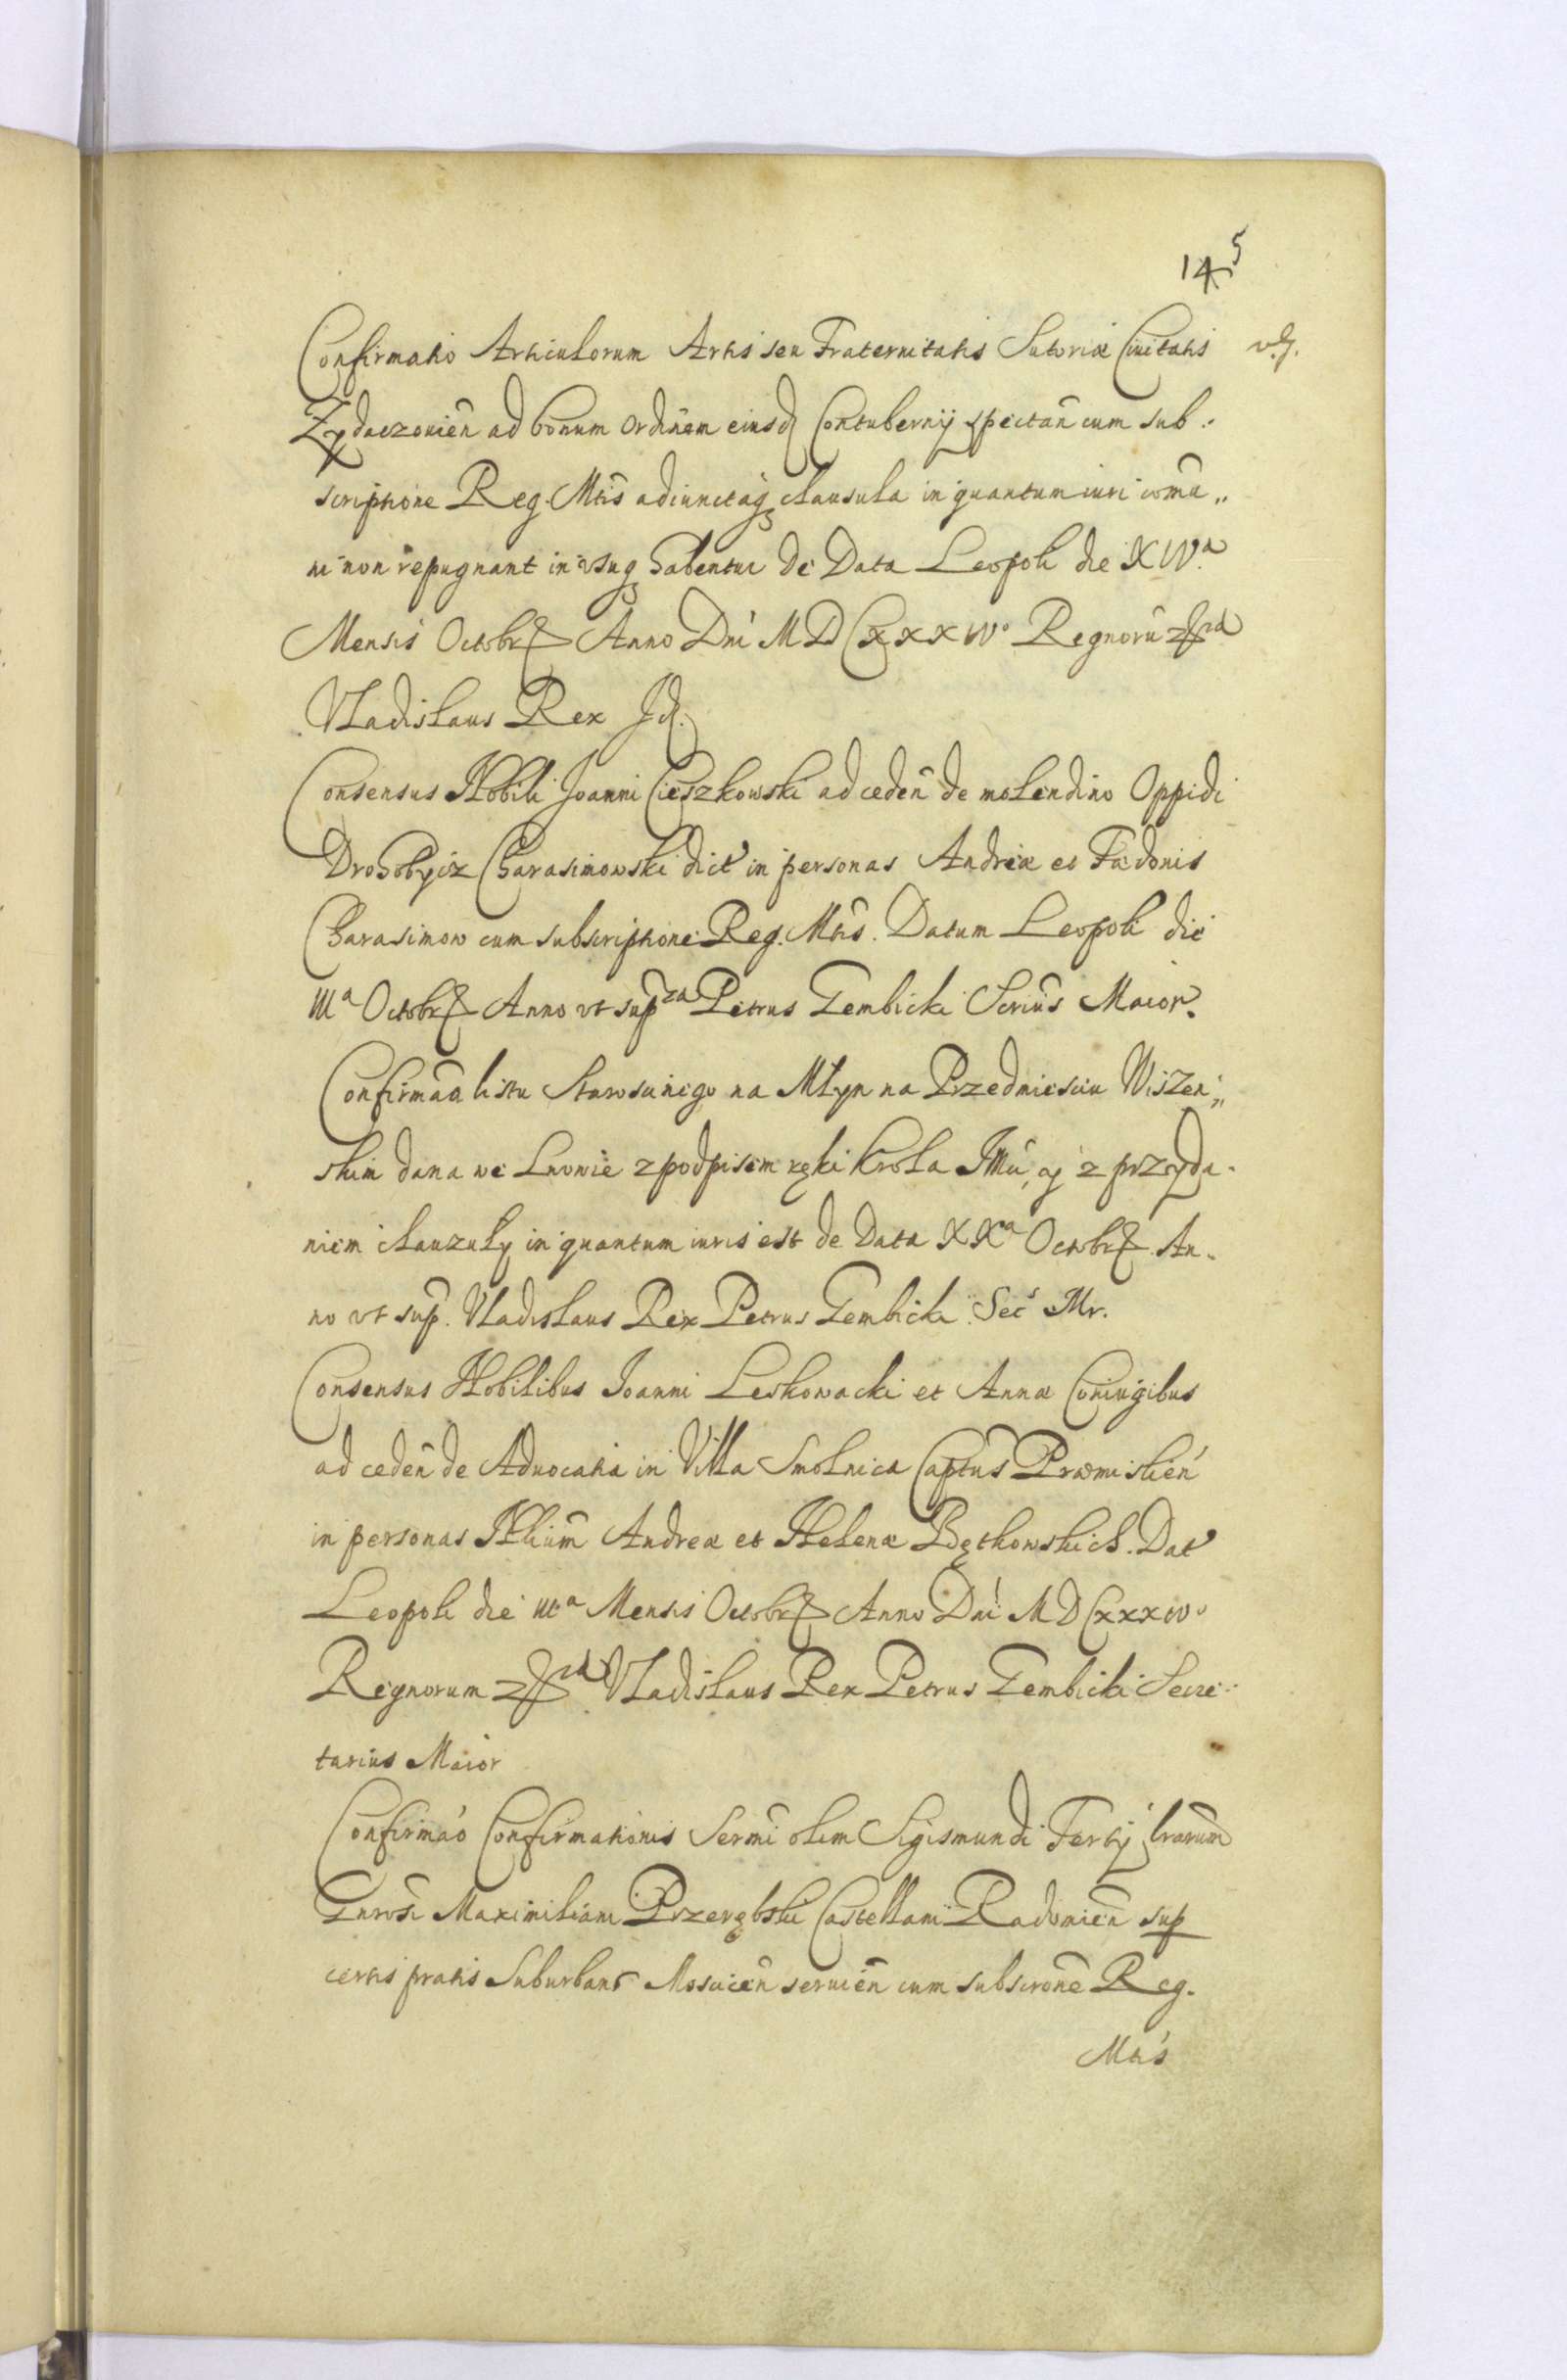 145
Confirmatio Articulorum Artis seu Fraternitatis Sutoriæ Ciuitatis
Zydaczouien̄ ad bonum ordinem eiusd Contubernij spectan̄ cum sub:
scriptione Reg. Mtis adiunctaq clausula in quantum iuri com̄u„
ni non repugnant in vsuq habentur de Data Leopoli die XIVa
Mensis Octobr Anno Dni MDCXXXIVo Regnorū
Vladislaus Rex Id.
Consensus Nobili Joanni Cieszkowski ad ceden̄ de molendino Oppidi
Drohobycz Charasimowski dict in personas Andreæ et Fædonis
Charasimow cum subscriptione Reg. Mtis. Datum Leopoli die
IIIa Octobr Anno vt supra Petrus Gembicki Secrius Maior.
Confirmaa listu Starosciniego na Młyn na Przedmiesciu Wiszen„
skim dana we Lwowie z podpisem ręki Krola JMci, y z przyda-
niem clauzuly in quantum iuris est de Data XXa Octobr An-
no vt sup. Vladislaus Rex Petrus Gembicki Sec Mr.
Consensus Nobilibus Joanni Leskowacki et Annæ Coniugibus
ad ceden̄ de Aduocatia in Villa Smolnica Captus Præmislien̄
in personas Nlium Andreæ et Helenæ Bętkowskich. Dat
Leopoli die IIIa Mensis Octobr Anno Dni MDCXXXIVo
Regnorum Vladislaus Rex Petrus Gembicki Secre:
tarius Maior
Confirmao Confirmationis Sermi olim Sigismundi Tertij lrarum
Gnrosi Maximiliani Przerębski Castellani Radomien̄ sup
certis pratis Suburban Moscicen̄ seruien̄ cum subscrone Reg.
Mtis